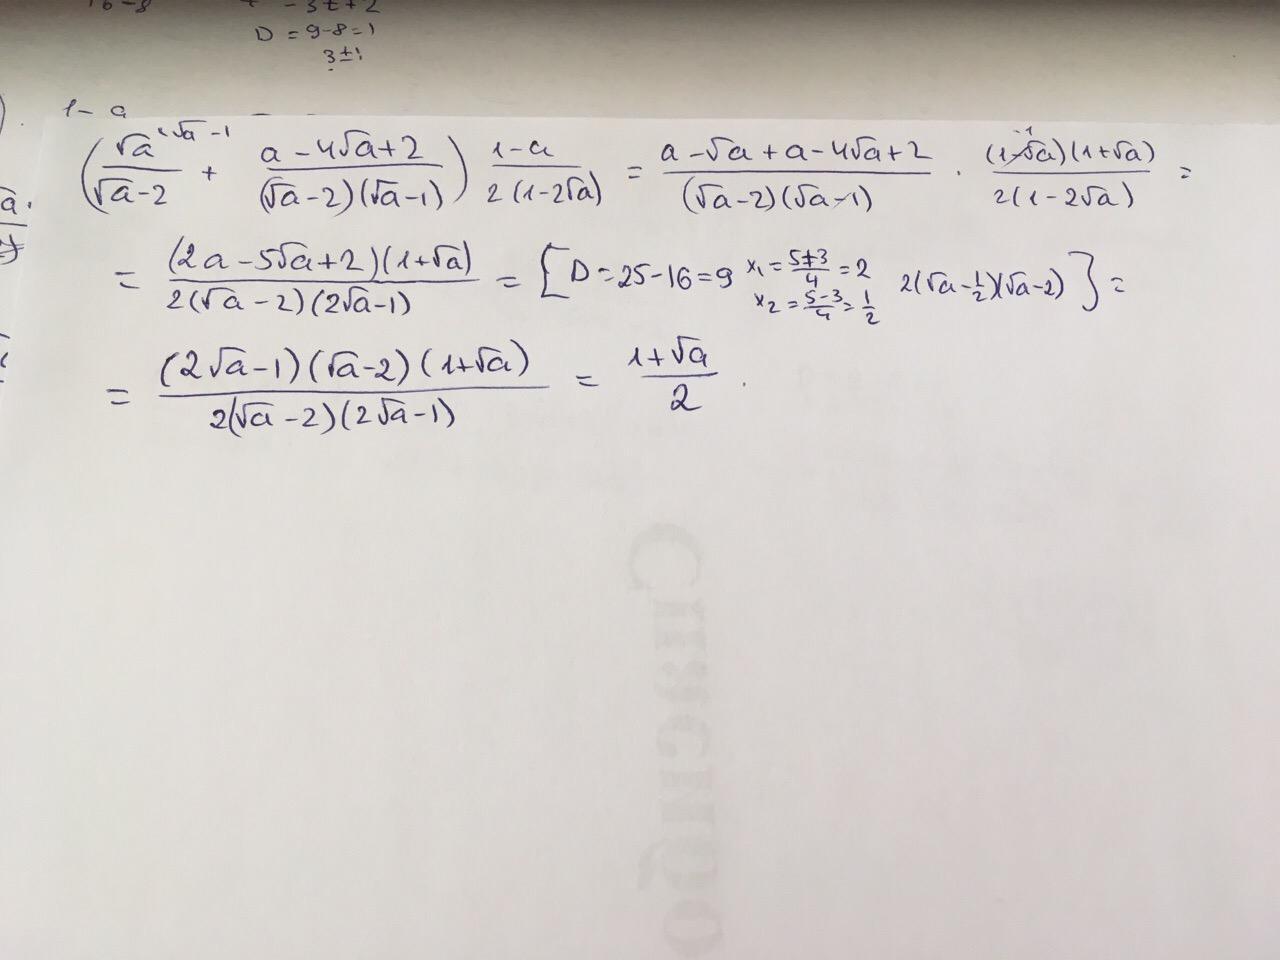 - 3t + 2
D = 9-8=1
3±1
1- a
(√a^{√a-1}/(√a-2) + (a-4√a+2)/((√a-2)(√a-1))) (1-a)/(2(1-2√a)) = (a-√a+a-4√a+2)/((√a-2)(√a-1)) · ((1-√a)(1+√a))/(2(1-2√a)) =
= ((2a-5√a+2)(1+√a))/(2(√a-2)(2√a-1)) = [D=25-16=9 x₁=(5+3)/4=2 x₂=(5-3)/4=1/2 2(√a-1/2)(√a-2)] =
= ((2√a-1)(√a-2)(1+√a))/(2(√a-2)(2√a-1)) = (1+√a)/2 .